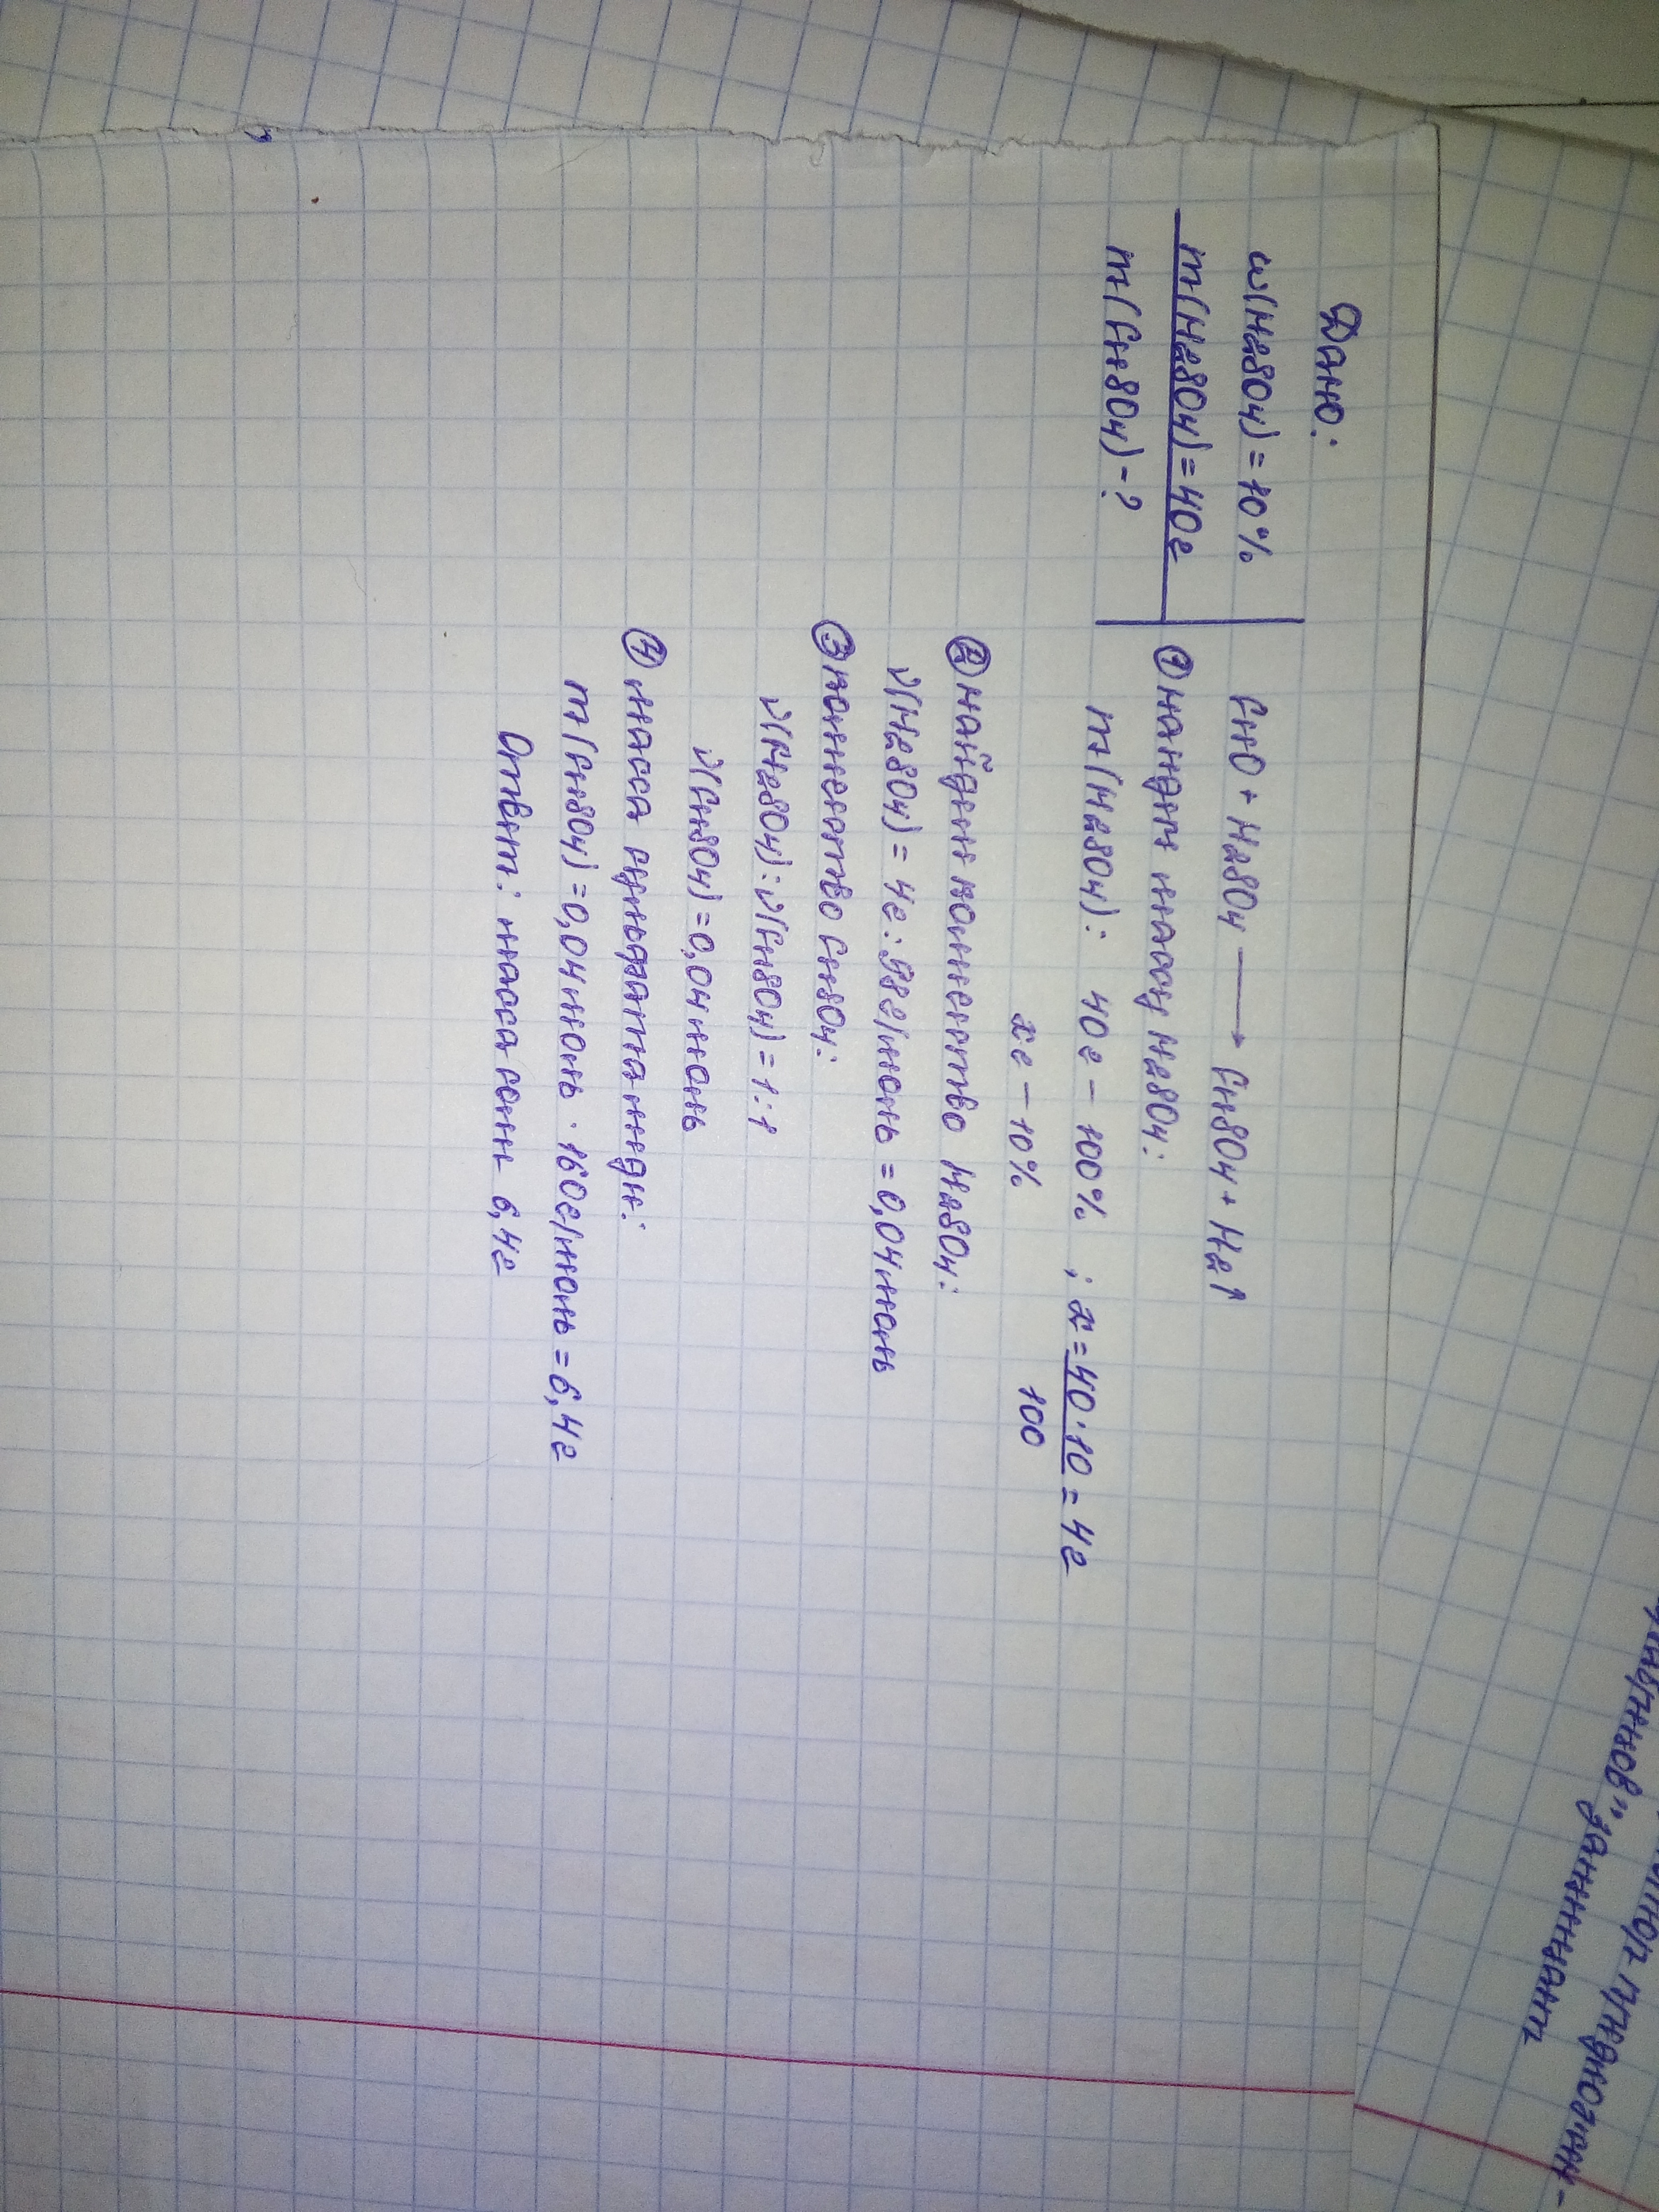 Дано:
ω(H2SO4)=10%
m(H2SO4)=40г
m(CuSO4)-?
CuO + H2SO4 → CuSO4 + H2↑
① найдем массу H2SO4:
m(H2SO4): 40г – 100% ; x = 40·10/100 = 4г
xг – 10%
② найдем количество H2SO4:
ν(H2SO4) = 4г : 98г/моль = 0,04моль
③ количество CuSO4:
ν(H2SO4):ν(CuSO4)=1:1
ν(CuSO4)=0,04моль
④ масса сульфата меди:
m(CuSO4)=0,04моль · 160г/моль = 6,4г
Ответ: масса соли 6,4г